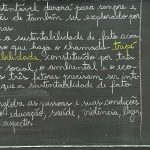 stentável durará para sempre e
de também será explorado por
mas.
a sustentabilidade de fato acon
so que haja o chamado tripé
bilidade, constituído por três
social, o ambiental e o eco
três fatores precisam ser int
que a sustentabilidade de fato
engloba as pessoas e suas condições
educação, saúde, violência, lazer,
aspectos